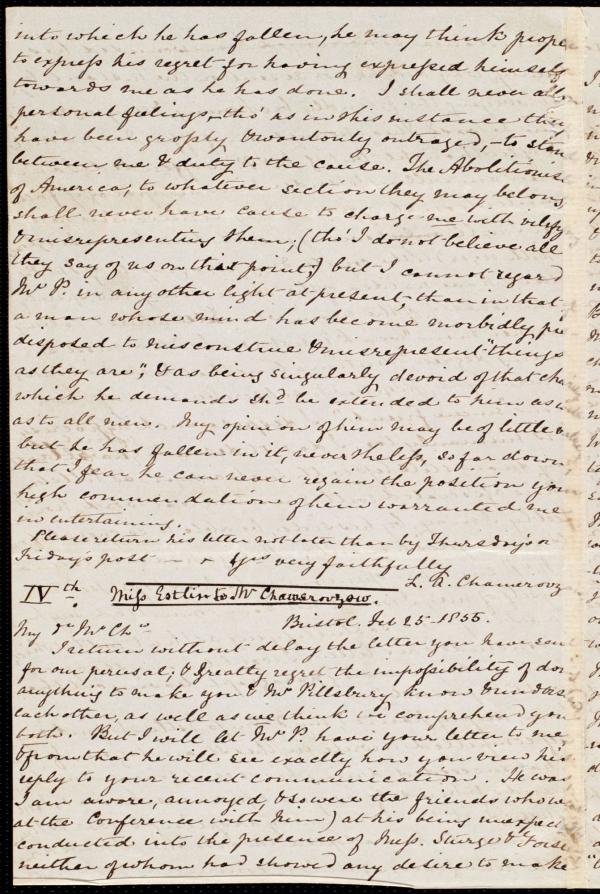 into which he has fallen, he may think prope
to express his regret for having expressed himself
towards me as he has done. I shall never all
personal feelings, tho' as in this instance they
have been grossly & wantonly outraged, to stan
between me & duty to the cause. The Abolitionis
of America, to whatever section they may belong
shall never have cause to charge me with vilify
& misrepresenting them, (tho' I do not believe all
they say of us on that point,) but I cannot regard
Mr P. in any other light at present, than in that
a man whose mind has become morbidly pre
disposed to misconstrue & misrepresent "things
as they are", & as being singularly devoid of that cha
which he demands shd be extended to him as w
as to all men. My opinion of him may be of little
but he has fallen in it, nevertheless, so far down
that I fear he can never regain the position your
high commendation of him warranted me
in entertaining.
Please return his letter not later than by Thursday's or
Friday's post — & yrs very faithfully
L. A. Chamerovz
IVth. Miss Estlin to Mr Chamerovzow.
Bristol. Feb 25. 1855.
My dr Mr Chw
I return without delay the letter you have sent
for our perusal; & greatly regret the impossibility of doi
anything to make you & Mr Pillsbury know & unders
each other, as well as we think we comprehend you
both. But I will let Mr P have your letter to me
& from that he will see exactly how you view his
reply to your recent communication. He was
I am aware, annoyed, (& so were the friends who w
at the Conference with him) at his being unexpect
conducted into the presence of Mess. Sturge & Forst
neither of whom had showed any desire to make